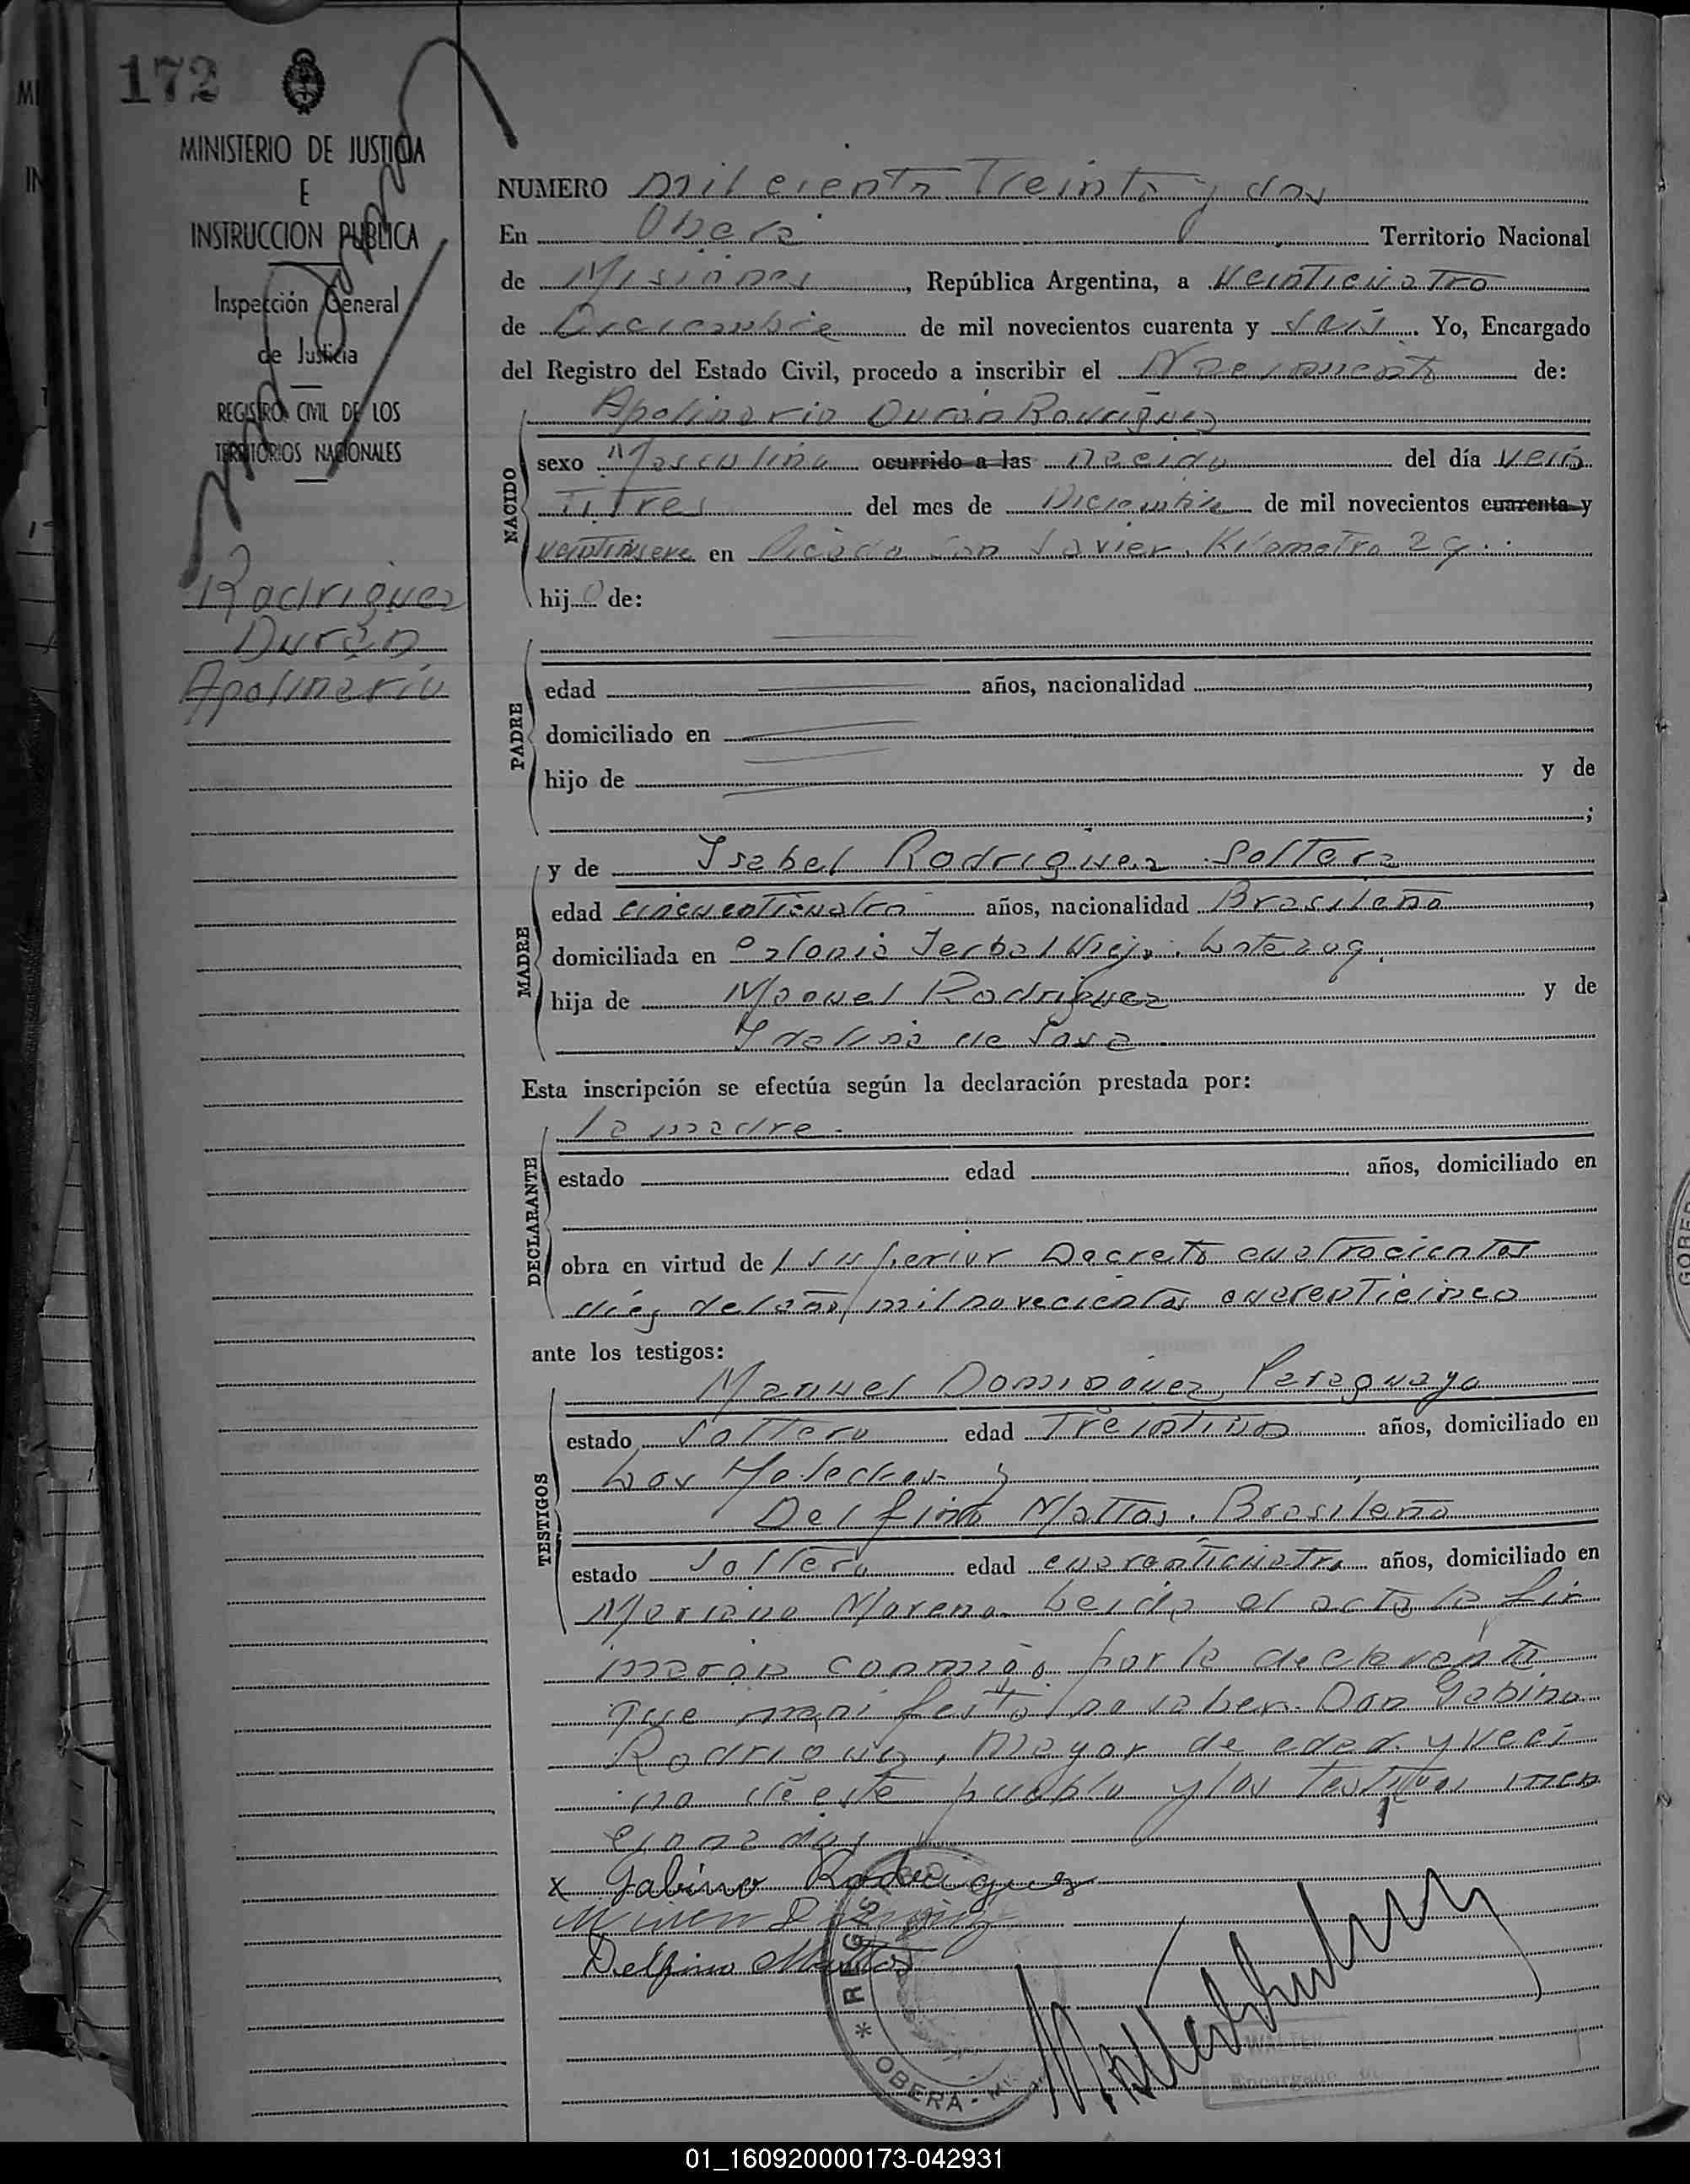 172
MINISTERIO DE JUSTICIA
E
INSTRUCCION PUBLICA
Inspección General
de Justicia
REGISTRO CIVIL DE LOS
TERRITORIOS NACIONALES
Rodriguez
Durán
Apolinario
NUMERO mil ciento Treinta y dos
En Oberá Territorio Nacional
de Misiones, República Argentina, a Veinticuatro
de Diciembre de mil novecientos cuarenta y seis. Yo, Encargado
del Registro del Estado Civil, procedo a inscribir el Nacimiento de:
Apolinario Durán Rodriguez
NACIDO
sexo Masculino ocurrido a las nacido del día Vein
Titres del mes de Diciembre de mil novecientos cuarenta y
veintinueve en Picada San Javier. Kilometro 29.
hijo de:
PADRE
edad años, nacionalidad ,
domiciliado en
hijo de y de
;
MADRE
y de Isabel Rodriguez Soltera
edad cincuenticuatro años, nacionalidad Brasileña,
domiciliada en Colonia Yerbal Viejo. Lote 209.
hija de Manuel Rodriguez y de
de Sosa
Esta inscripción se efectúa según la declaración prestada por:
DECLARANTE
la madre.
estado edad años, domiciliado en
obra en virtud del Superior Decreto cuatrocientos
diez del año mil novecientos cuarenticinco
ante los testigos:
TESTIGOS
Manuel Dominguez, Paraguayo
estado Soltero edad Treintiun años, domiciliado en
Los y
Delfino Mattos. Brasileño
estado Soltero edad cuarenticuatro años, domiciliado en
Mariano Moreno. Leida el acta la fir
maron conmigo por la declarante
que manifestó no saber. Don Gabino
Rodriguez, mayor de edad y veci
no de este pueblo y los testigos men
cionados
x Gabino Rodriguez
Delfino Mattos
REGIST
* OBERA - M
WALTER
Encargado
GOBER
01_160920000173-042931